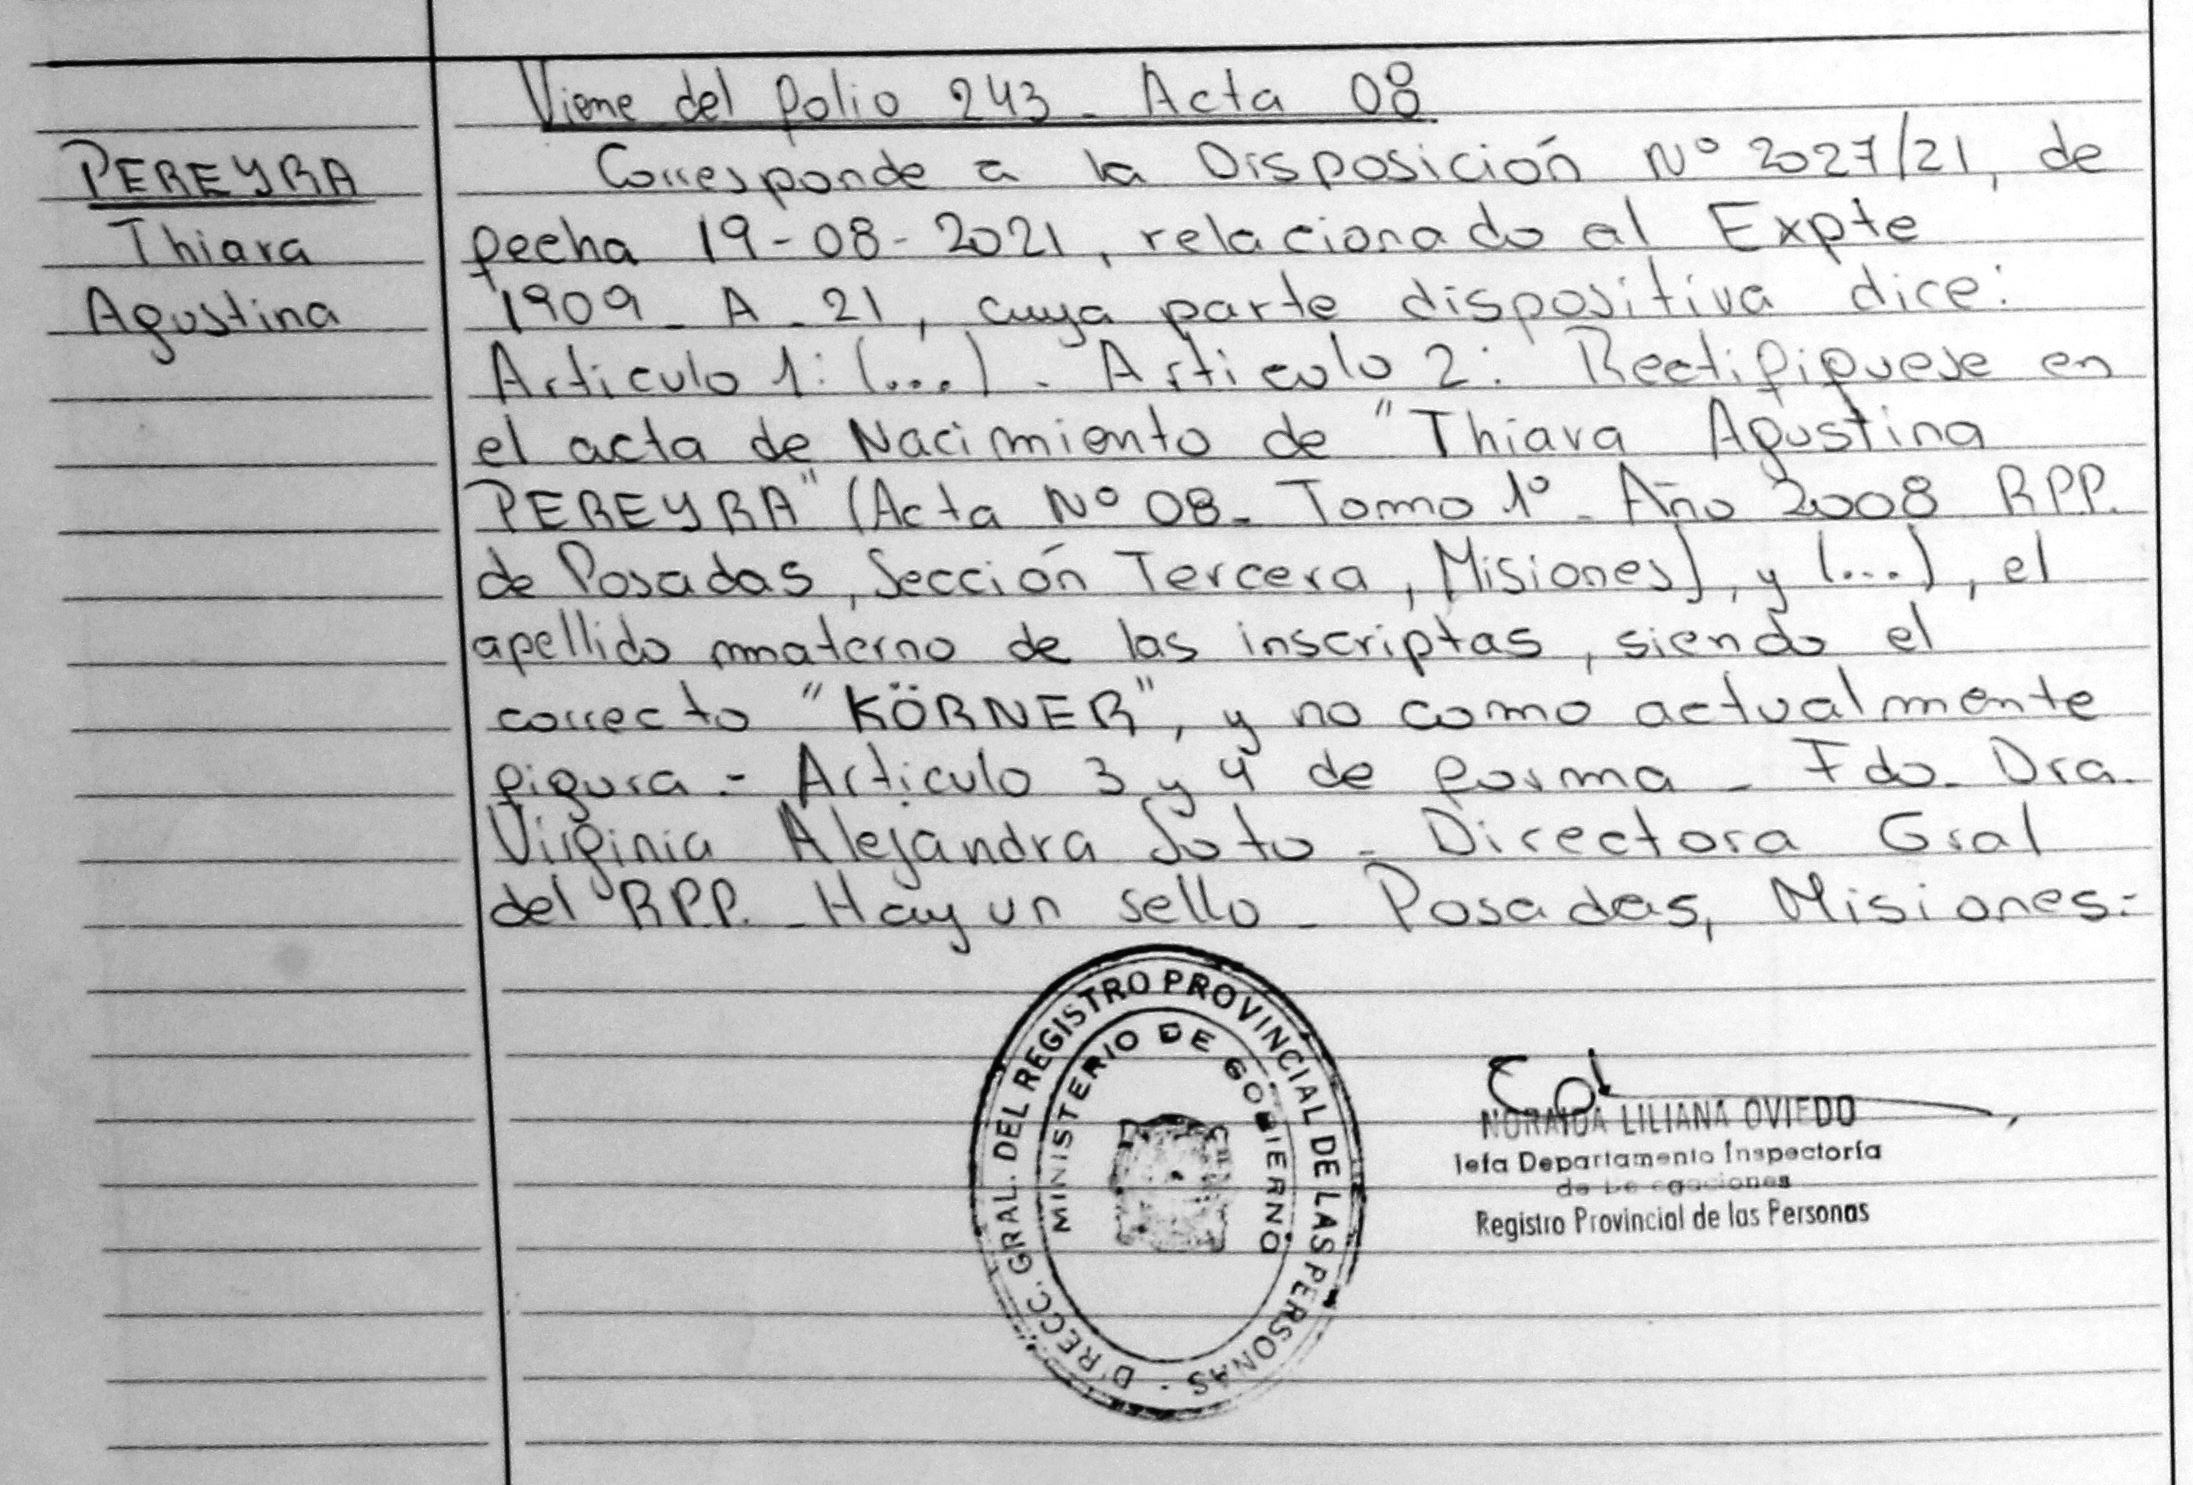 Viene del folio 243 - Acta 08
PEREYRA
Thiara
Agustina
Corresponde a la Disposición Nº 2027/21, de
fecha 19-08-2021, relacionado al Expte
1909 - A - 21, cuya parte dispositiva dice:
Articulo 1: (...) - Articulo 2: Rectifiquese en
el acta de Nacimiento de "Thiara Agustina
PEREYRA" (Acta Nº 08 - Tomo 1º - Año 2008 RPP.
de Posadas, Sección Tercera, Misiones), y (...), el
apellido materno de las inscriptas, siendo el
correcto "KÖRNER", y no como actualmente
figura.- Articulo 3 y 4 de forma - Fdo. Dra.
Virginia Alejandra Soto - Directora Gral
del RPP. - Hay un sello - Posadas, Misiones.-
DIRECC. GRAL. DEL REGISTRO PROVINCIAL DE LAS PERSONAS -
MINISTERIO DE GOBIERNO
NORAIDA LILIANA OVIEDO
Jefa Departamento Inspectoría
de
Registro Provincial de las Personas